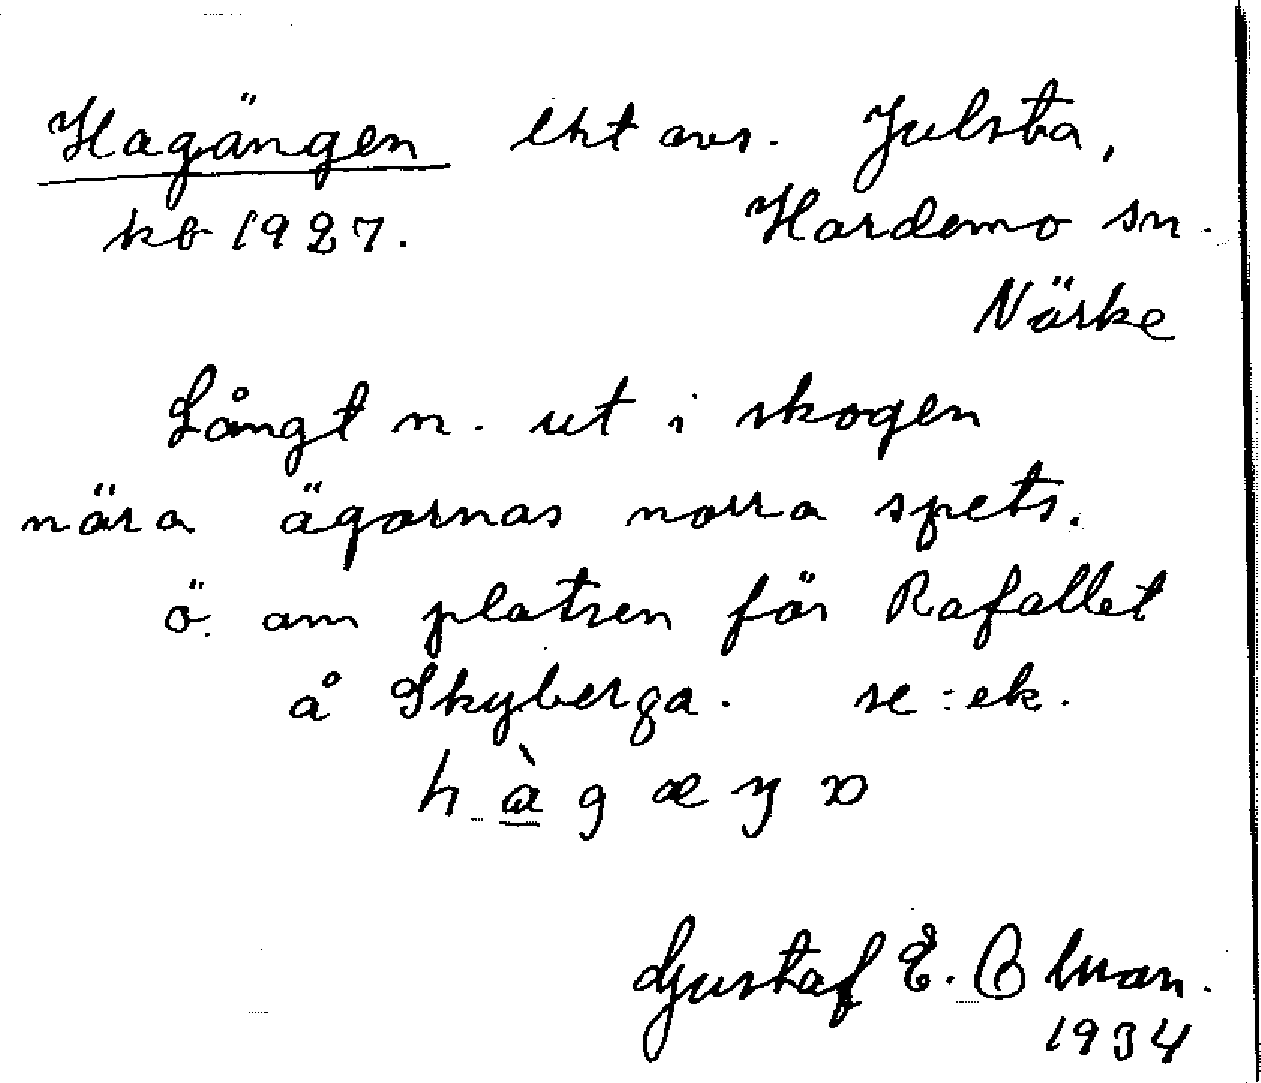 Hagängen lht avs. Julsta,
kb 1927. Hardemo sn.
Närke
Långt n. ut i skogen
nära ägornas norra spets.
ö. om platsen för Rafallet
å Skyberga. se: ek.
h à g æ ŋ
Gustaf E.
1934